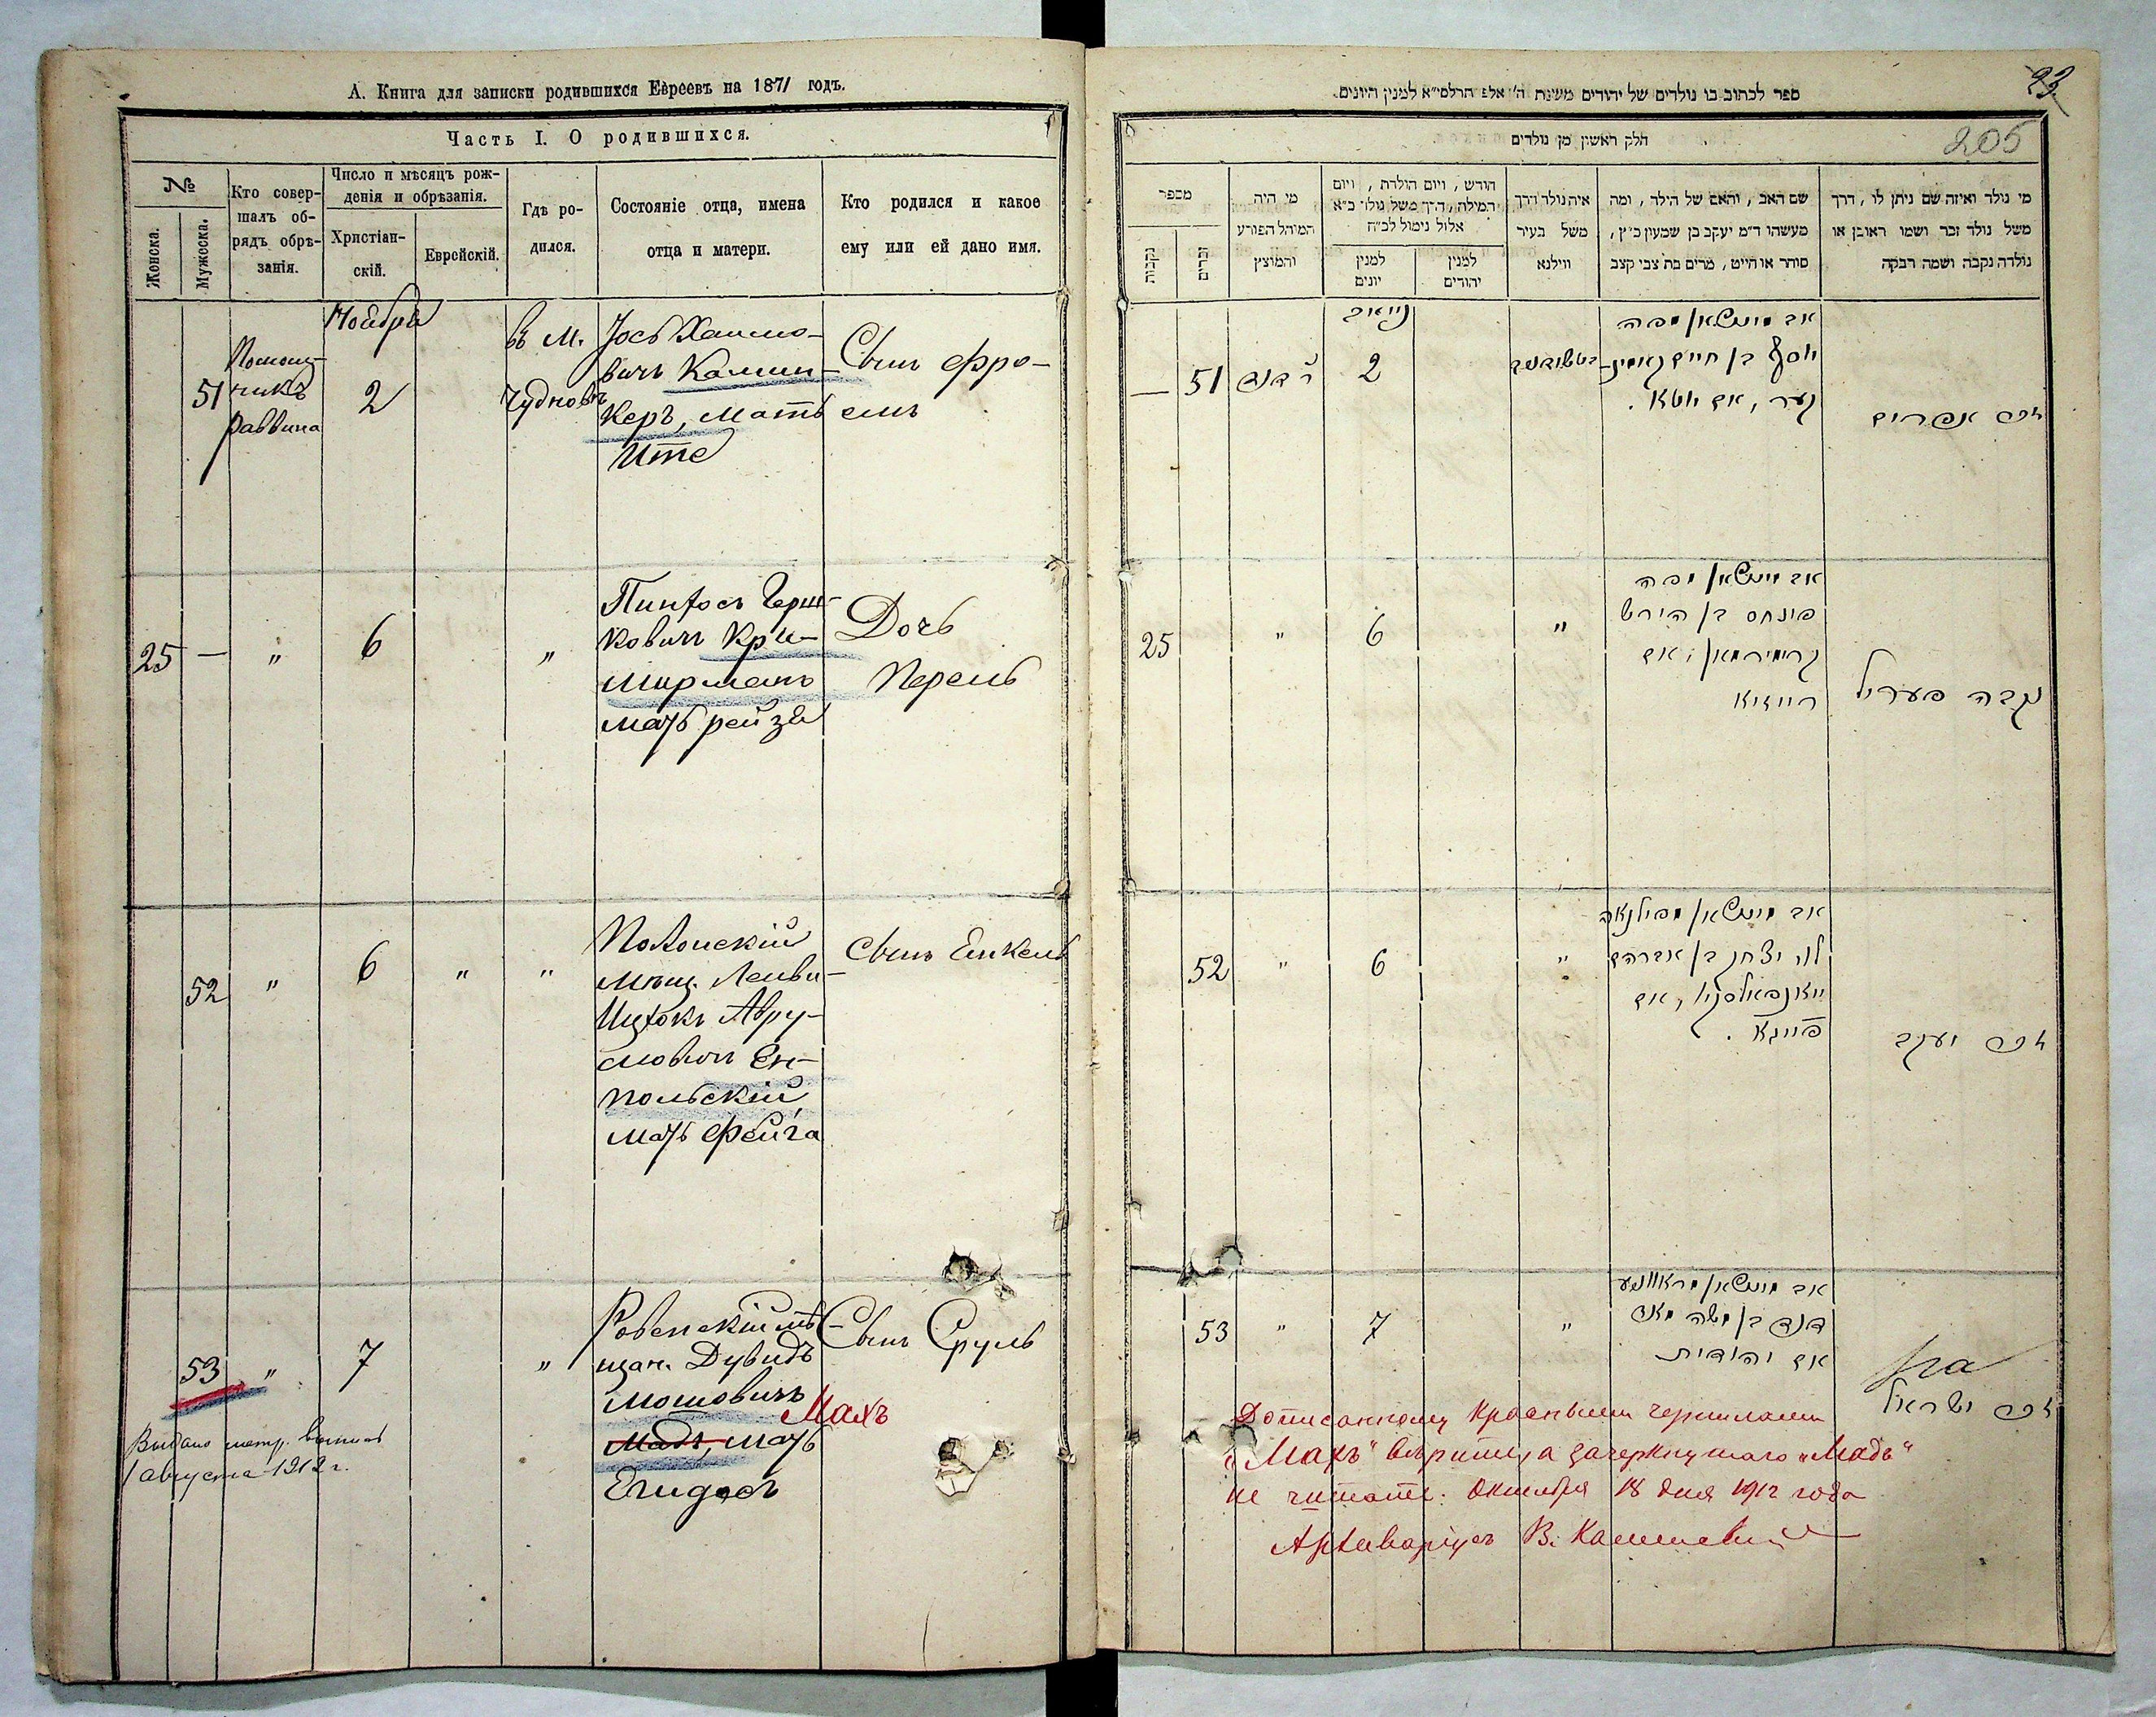 А. Книга для записки родившихся Евреевъ на 1871 годъ.
Часть I. О родившихся.
№
Женска.
Мужеска.
Кто совер-
шалъ об-
рядъ обрѣ-
занія.
Число и мѣсяцъ рож-
денія и обрѣзанія.
Христіан-
скій.
Еврейскій.
Гдѣ ро-
дился.
Состояніе отца, имена
отца и матери.
Кто родился и какое
ему или ей дано имя.
51
Помощ-
никъ
раввина
Ноября
2
въ м.
Чудновѣ
Іось Хаимо-
вичъ Камин-
керъ, мать
Ите
Сынъ Фро-
емъ
25
—
"
6
"
Пинхосъ Герш-
ковичъ Кри-
мирманъ
мать рейзя
Дочь
Перель
52
"
6
"
"
Полонскій
мѣщ.
Ицхокъ Авру-
мовичъ Ен-
польскій
мать Фейга
Сынъ Енкель
53
"
7
"
Ровенскій мѣ-
щан. Дувидъ
Мошовичъ
Махъ
Мадъ, мать
Егидесъ
Сынъ Сруль
Выдано метр. выпись
1 августа 1912 г.
23
205
ספר לכתוב בו נולדים של יהודים משנת ה' אלפ תרלסי"א למנין היונים.
חלק ראשון מן נולדים
מספר
נקבות
זכרים
מי היה
המוהל הפורע
והמוצץ
חודש, ויום הולדת, ויום
המילה, ה"ך משל נולד כ"א
אלול נימול לכ"ח
למנין
יונים
למנין
יהודים
איה נולד דרך
משל בעיר
ווילנא
שם האב, והאם של הילד, ומה
מעשהו ד"מ יעקב בן שמעון כ"ץ,
סוחר או חייט, מרים בת צבי קצב
מי נולד ואיזה שם ניתן לו, דרך
משל נולד זכר ושמו ראובן או
נולדה נקבה ושמה רבקה
—
51
2
יוסף בן חיים קאמינ-
קער, אם יוטא.
זכר אפרים
25
"
6
"
פינחס בן הירש
קרימירמאן, אם
רייזיא
נקבה פעריל
52
"
6
"
לוי יצחק בן אברהם
יאנפאלסקי, אם
פייגא.
זכר יעקב
53
"
7
"
דוד בן משה מאד
אם יהודית
זכר ישראל
Дописанному красными чернилами
„Махъ" вѣрить, а зачеркнутаго „Мадъ"
не читать. Октября 18 дня 1912 года
Архиваріусъ В.